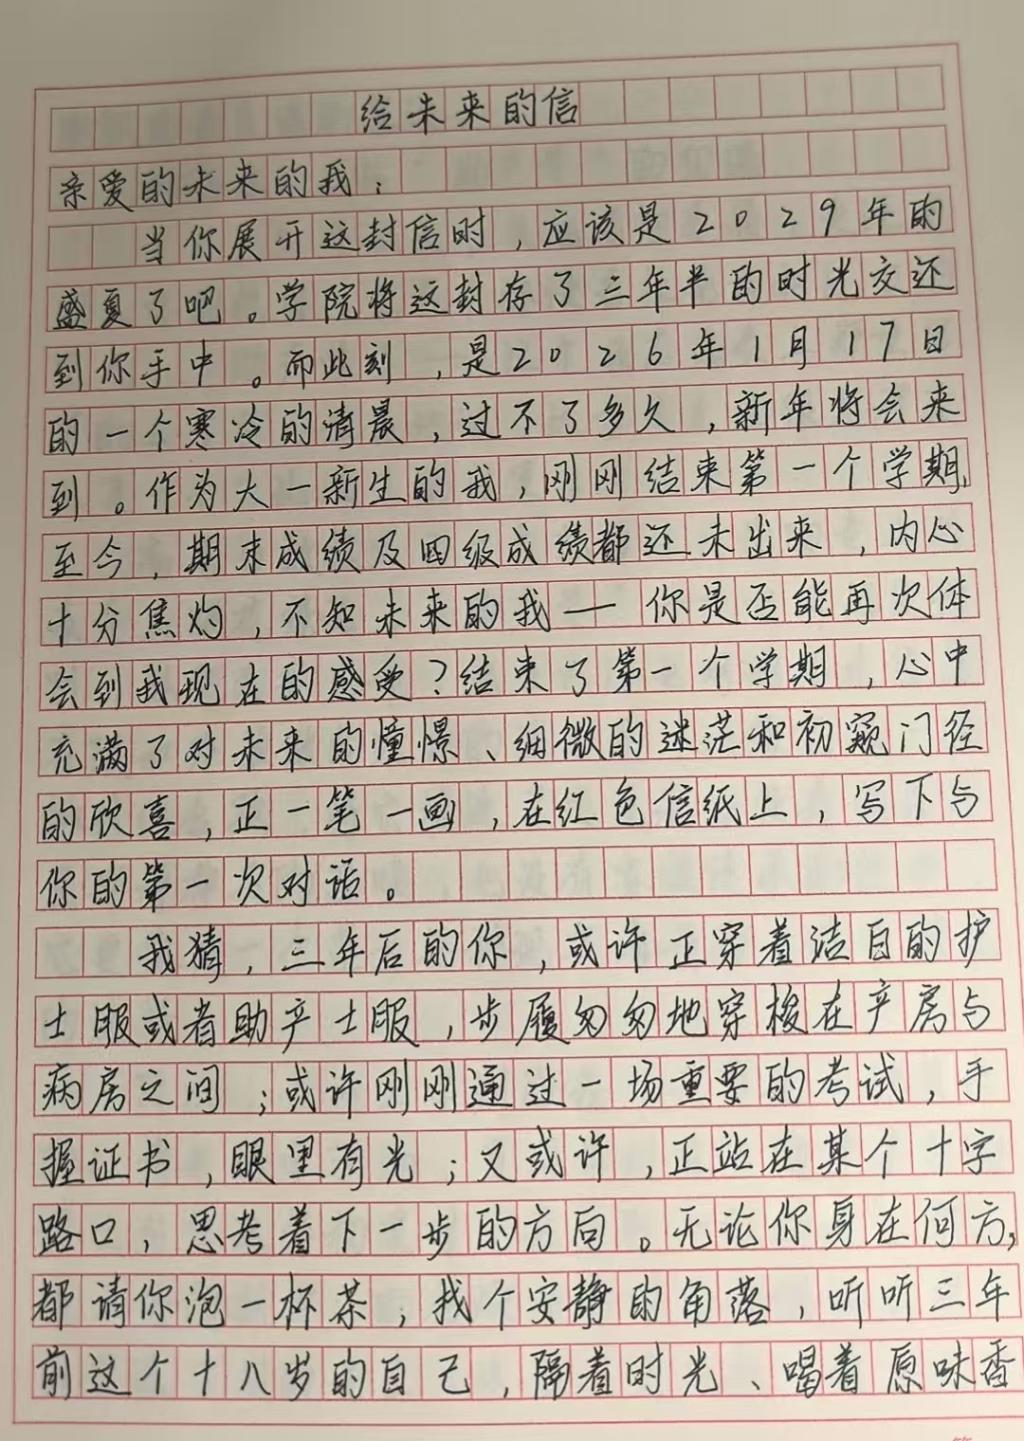 给未来的信
亲爱的未来的我：
当你展开这封信时，应该是2029年的
盛夏了吧。学院将这封存了三年半的时光交还
到你手中。而此刻，是2026年1月17日
的一个寒冷的清晨，过不了多久，新年将会来
到。作为大一新生的我，刚刚结束第一个学期，
至今，期末成绩及四级成绩都还未出来，内心
十分焦灼，不知未来的我——你是否能再次体
会到我现在的感受？结束了第一个学期，心中
充满了对未来的憧憬、细微的迷茫和初窥门径
的欣喜，正一笔一画，在红色信纸上，写下与
你的第一次对话。
我猜，三年后的你，或许正穿着洁白的护
士服或者助产士服，步履匆匆地穿梭在产房与
病房之间；或许刚刚通过一场重要的考试，手
握证书，眼里有光；又或许，正站在某个十字
路口，思考着下一步的方向。无论你身在何方，
都请你泡一杯茶，找个安静的角落，听听三年
前这个十八岁的自己，隔着时光、喝着原味香